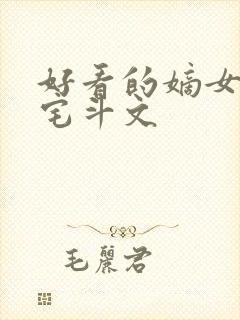 好看的嫡女
宅斗文
毛丽君